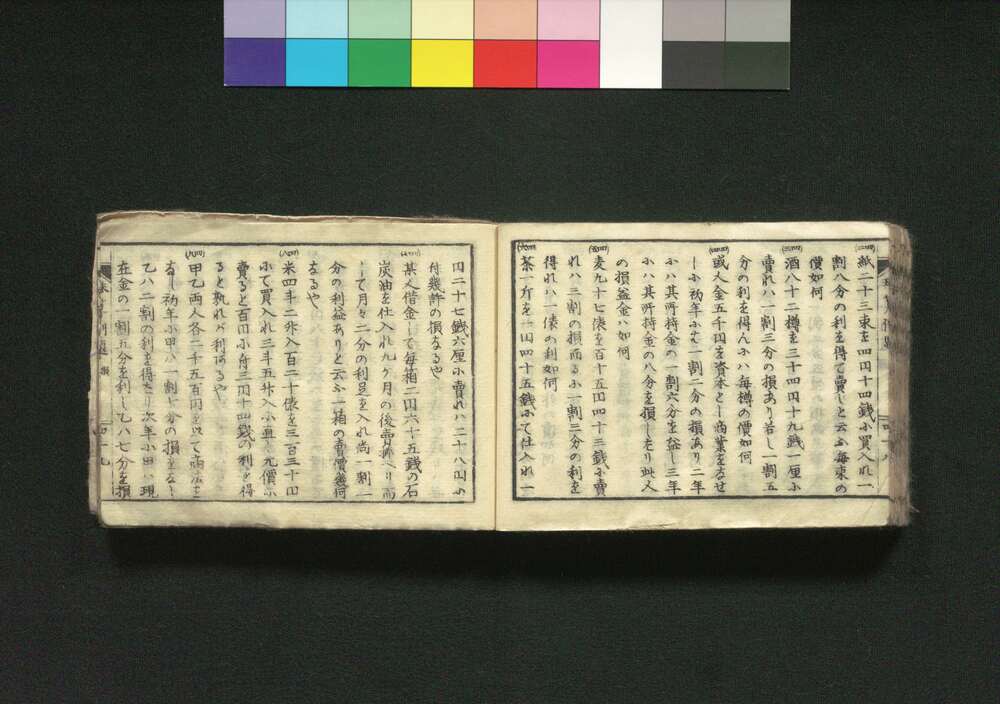 (二四)
紙二十三束を四円十四銭小買入れ一
割八分の利を得て賣しと云ふ毎束の
價如何
(三四)
酒八十二樽を三千四円十九銭一厘ふ
賣れハ一割三分の損あり若し一割五
分の利を得んふハ毎樽の價如何
(四四)
或人金五千円を資本とし商業をなせ
しふ初年ふハ一割二分の損あり二年
ふハ其所持金の一割六分を益し三年
ふハ其所持金の八分を損したり此人
の損益金ハ如何
(五四)
麦九十七俵を百十五円四十三銭ふ賣
れハ三割の損而るふ一割三分の利を
得れハ一俵の利如何
(六四)
茶一斤を一円四十五銭ふて仕入れ一
円二十七銭六厘ふ賣れハ二十八円ふ
付幾許の損なるや
(七四)
某人借金して毎箱二円六十五銭の石
炭油を仕入れ九ケ月の後賣拂へり而
して月々二分の利足を入れ尚一割一
分の利益ありと云ふ一箱の賣價幾何
なるや
(八四)
米四斗二升入百二十俵を三百三十円
ふて買入れ三斗五升入ふ直し元價ふ
賣ると百円ふ付三円十四銭の利を得
ると孰れが利あるや
(九四)
甲乙両人各二千五百円を以て商法を
なし初年ふ甲ハ一割七分の損をなし
乙ハ二割の利を得たり次年ふ甲ハ現
在金の一割五分を利し乙ハ七分を損